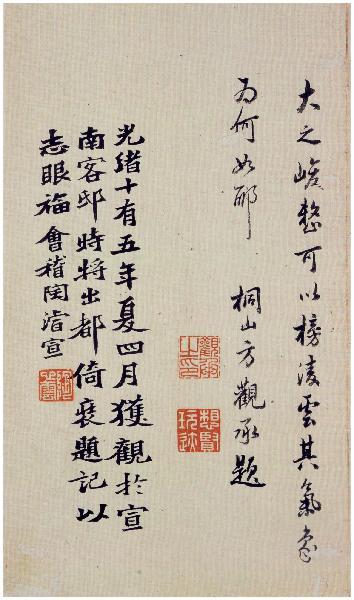 大之峻整可以榜凌雲其氣象
為何如耶 桐山方觀承題
光緒十有五年夏四月獲觀於宣
南客邸時將出都倚裝題記以
志眼福會稽陶濬宣